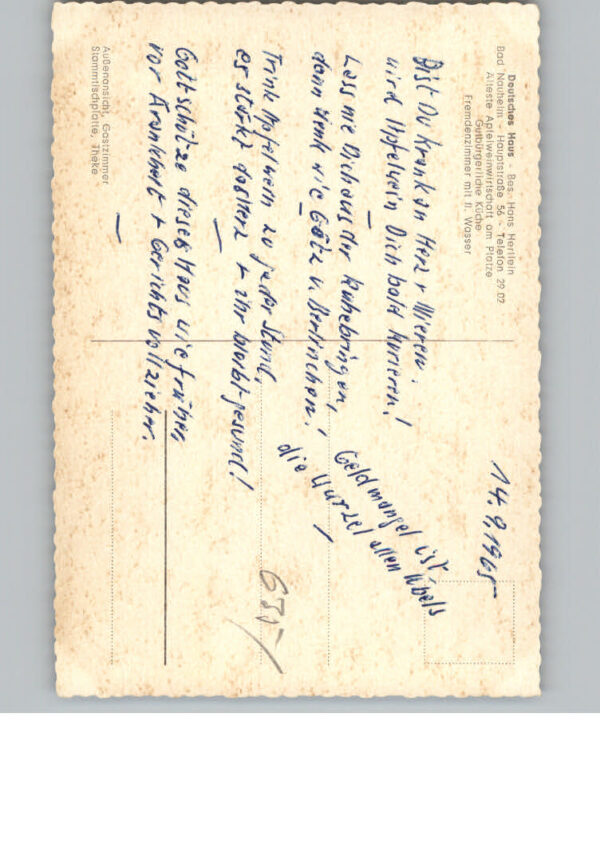 Deutsches Haus - Bes. Hans Hertlein
Bad Nauheim - Hauptstraße 56 - Telefon 29 02
Älteste Apfelweinwirtschaft am Platze
Gutbürgerliche Küche
Fremdenzimmer mit fl. Wasser
14.9.1965
Bist Du krank an Herz + Nieren.
wird Apfelwein Dich bald kurieren!
Lass nie Dich aus der Ruhe bringen,
dann denk wie Götz v. Berlinchen!
Trink Apfelwein zu jeder Stund,
es stärkt das Herz + ihr bleibt gesund!
Gott schütze dieses Haus wie früher,
vor Krankheit + Gerichtsvollzieher.
Geldmangel ist
die Wurzel allen Übels
Außenansicht, Gastzimmer
Stammtischplatte, Theke